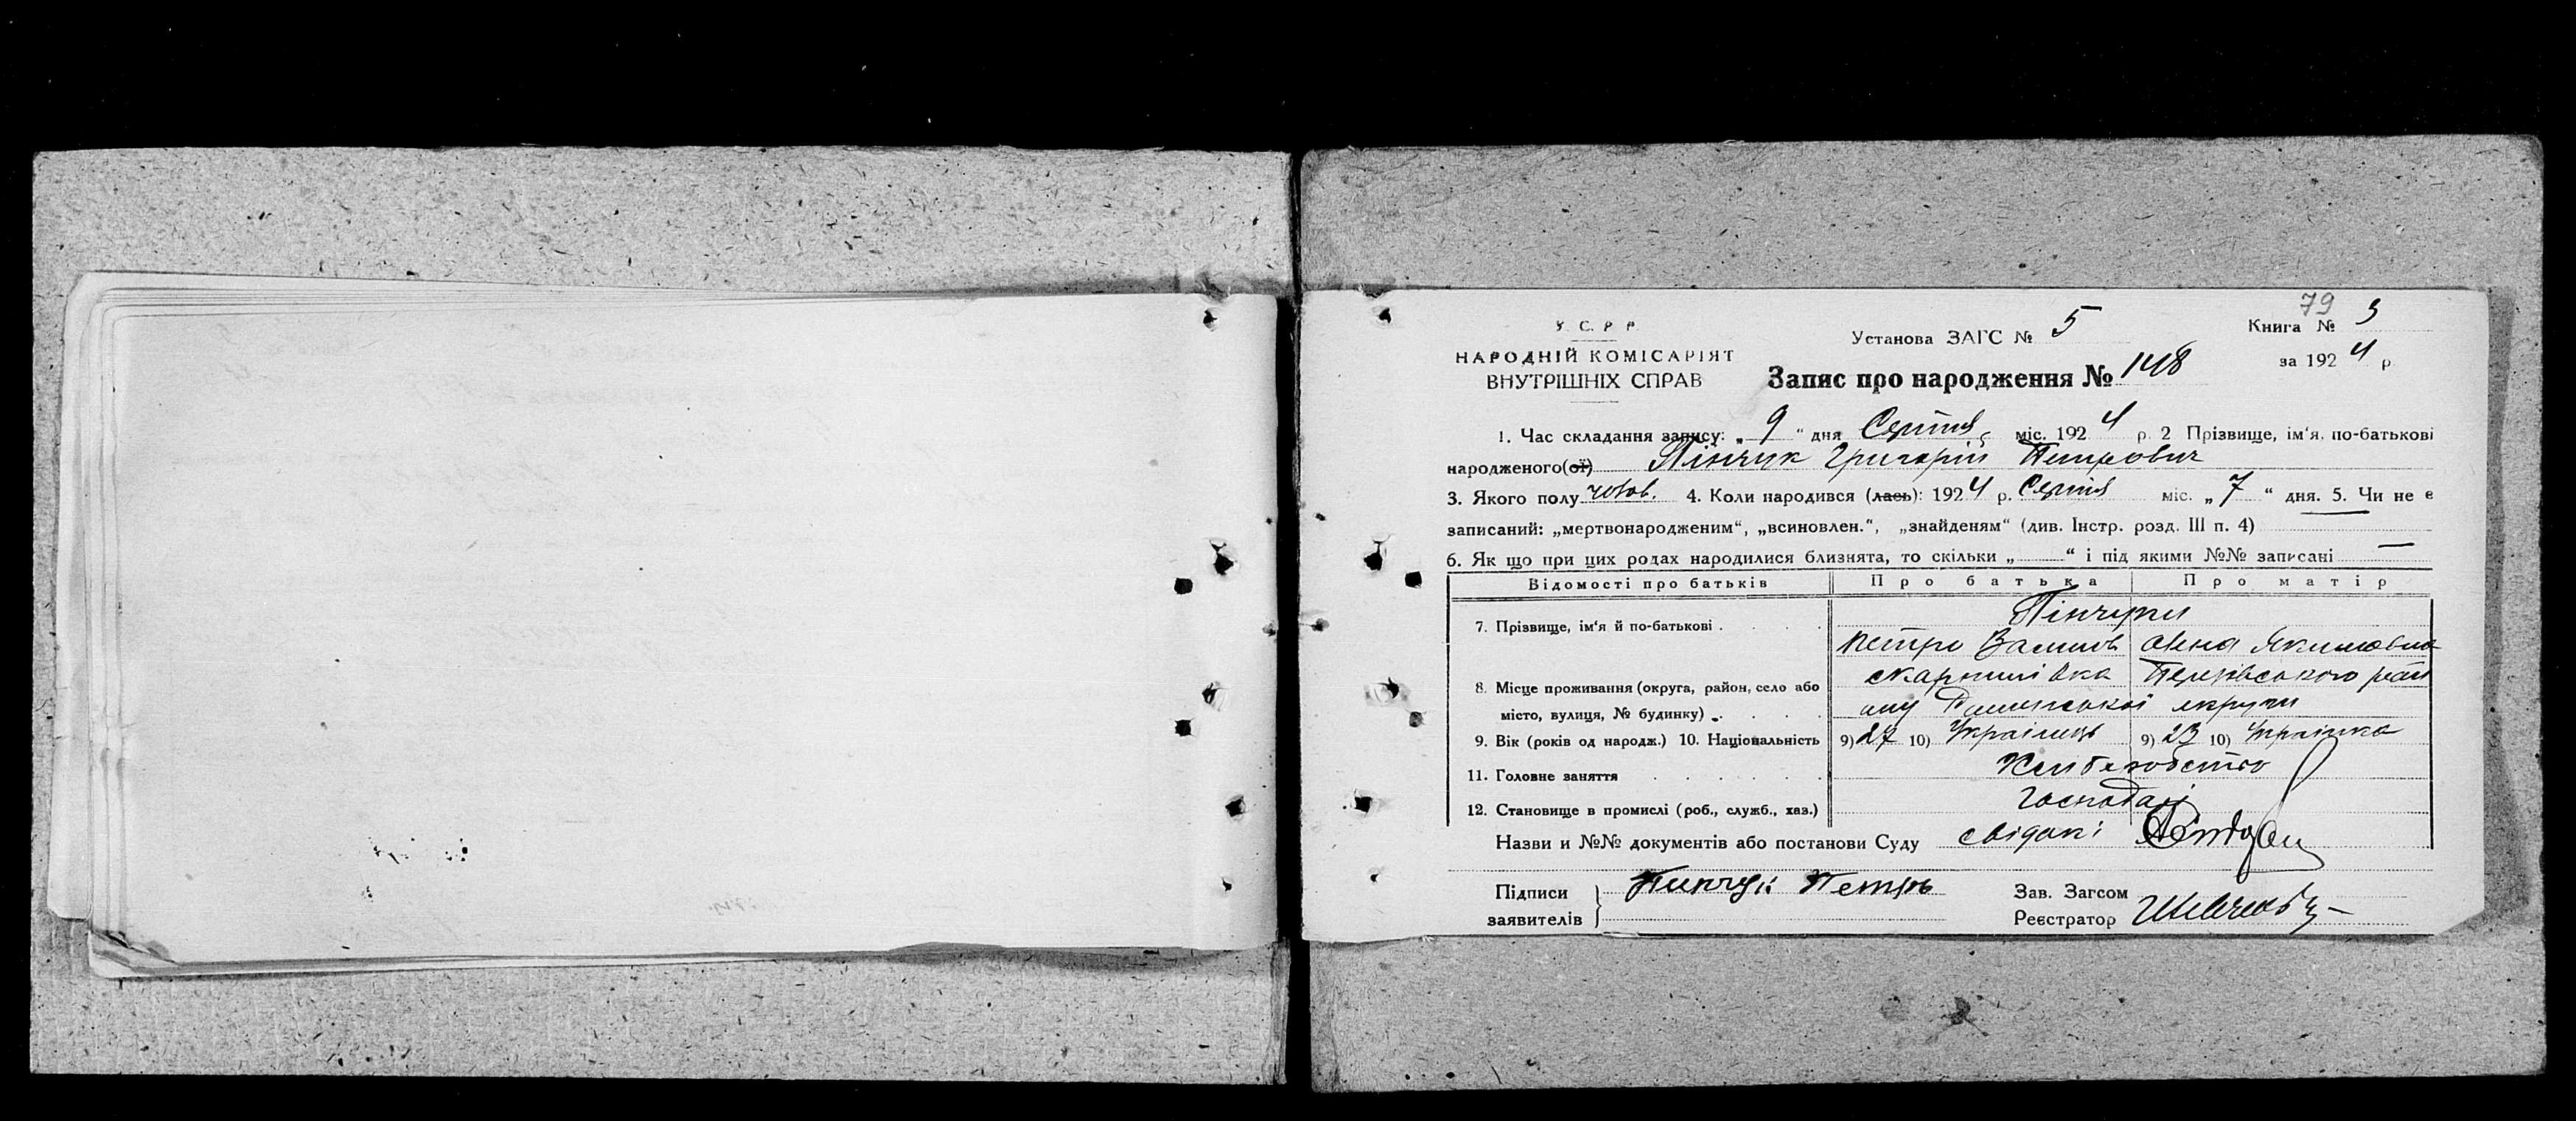 79
У. С. Р. Р.
НАРОДНІЙ КОМІСАРІЯТ
ВНУТРІШНІХ СПРАВ
Установа ЗАГС № 5
Книга № 3
за 1924 р.
Запис про народження № 148
1. Час складання запису: „ 9 “ дня Серпня міс. 1924 р. 2 Прізвище, ім'я, по-батькові
народженого(ої) Пінчук Григорій Петрович
3. Якого полу чолов. 4. Коли народився (лась): 1924 р. Серпня міс. „ 7 “ дня. 5. Чи не є
записаний: „мертвонародженим“, „всиновлен.“, „знайденям“ (див. Інстр. розд. III п. 4) —
6. Як що при цих родах народилися близнята, то скільки „ “ і під якими №№ записані —
Відомості про батьків Про батька Про матір
Пінчуки
7. Прізвище, ім'я й по-батькові . . . .
Петро Васильов Олена Якимовна
8. Місце проживання (округа, район, село або
місто, вулиця, № будинку) . . . .
округи
9. Вік (років од народж.) 10. Національність 9) 27 10) Українець 9) 23 10) Українка
11. Головне заняття . . . . . . Хліборобство
12. Становище в промислі (роб., служб., хаз.) Господарі
Назви и №№ документів або постанови Суду свідки:
Підписи
заявителів
Пинчук Петро
Зав. Загсом
Реєстратор